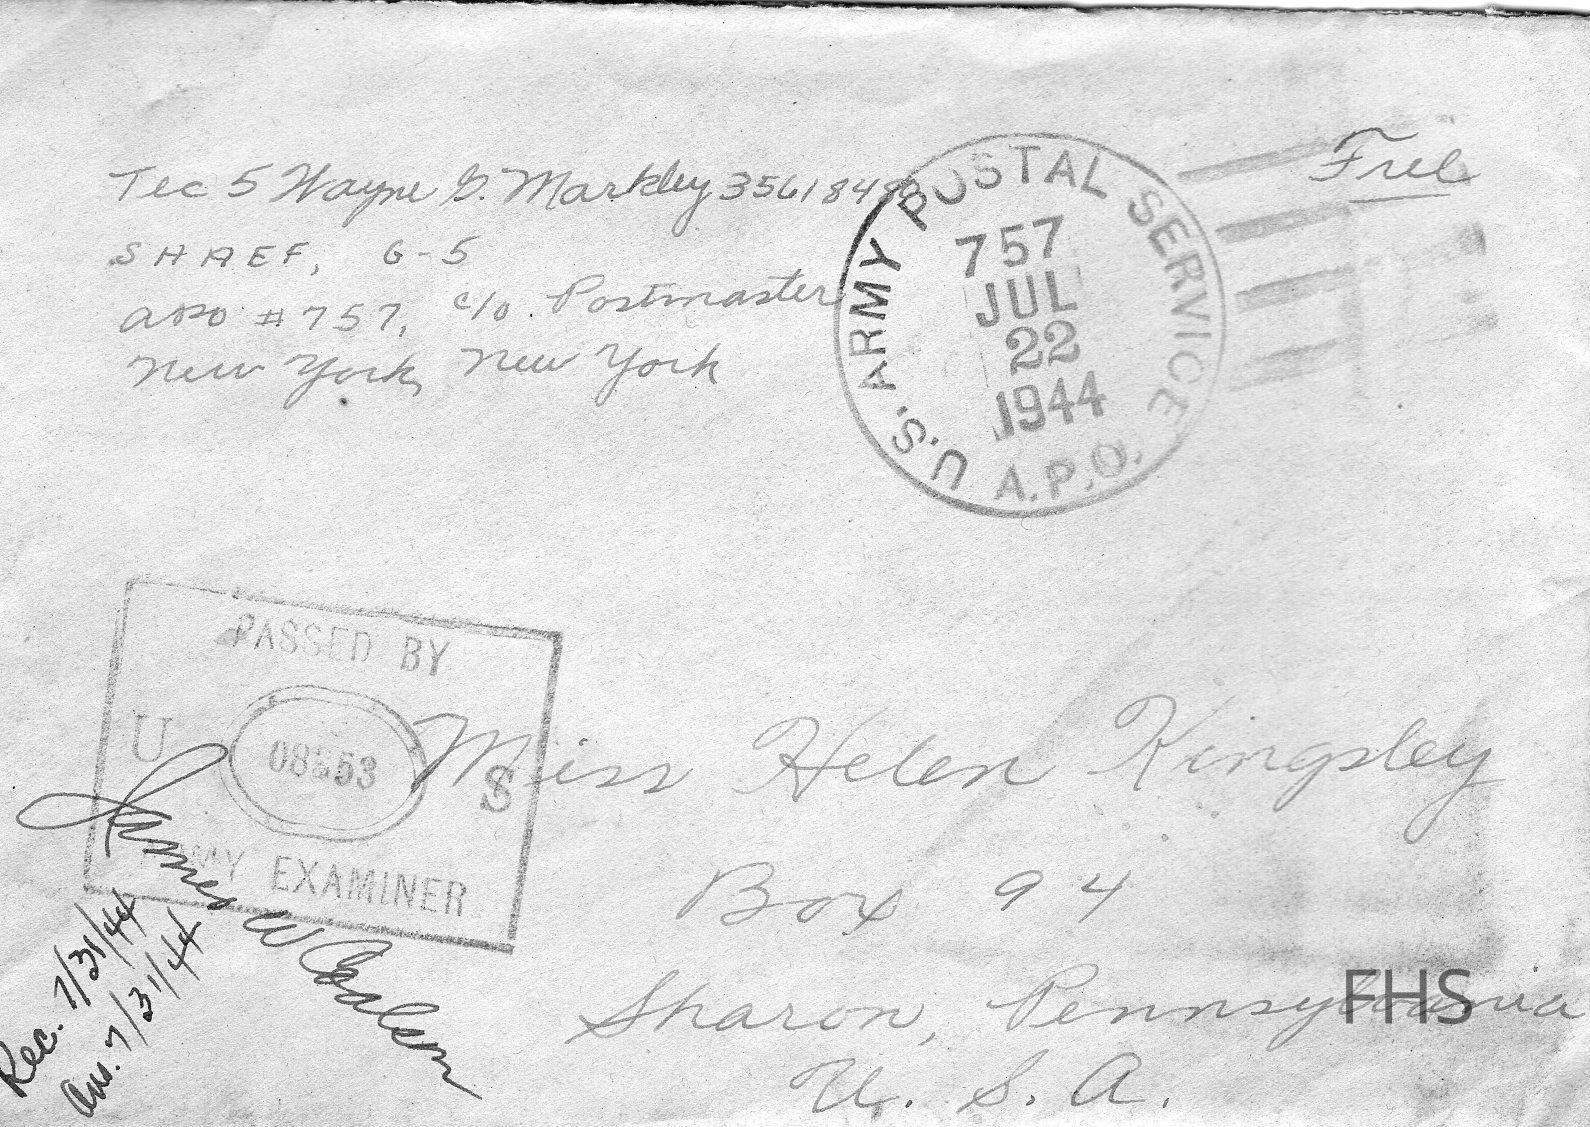 Tec 5 Wayne G. Markley 3561848
SHAEF, G-5
APO #757, c/o Postmaster
New York, New York
Free
U.S. ARMY POSTAL SERVICE
A.P.O.
757
JUL
22
1944
PASSED BY
U S
ARMY EXAMINER
Miss Helen Kingsley
Box 94
Sharon, Pennsylvania
U. S. A.
James W
Rec. 7/31/44
Ans. 7/31/44
FHS